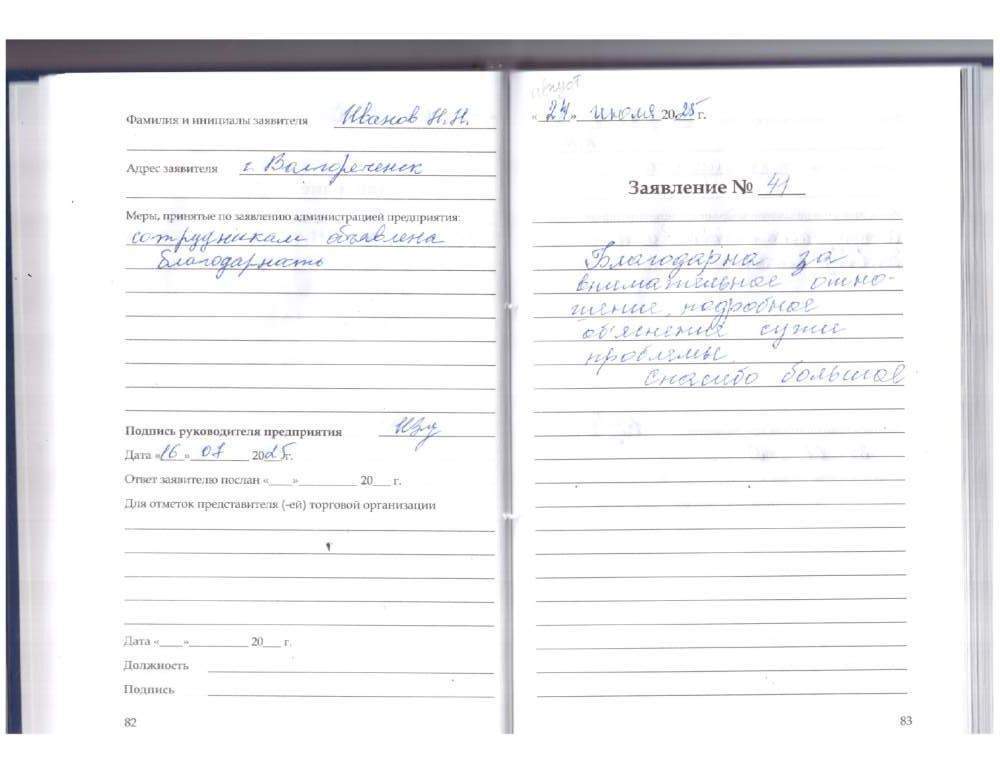 Фамилия и инициалы заявителя Иванов Н.Н.
Адрес заявителя г. Волгореченск
Меры, принятые по заявлению администрацией предприятия:
сотрудникам объявлена
благодарность
Подпись руководителя предприятия
Дата «16» 07 2025г.
Ответ заявителю послан «____»__________ 20___ г.
Для отметок представителя (-ей) торговой организации
Дата «____»__________ 20___ г.
Должность
Подпись
82
«24» июля 2025г.
Заявление № 41
Благодарна за
внимательное отно-
шение, подробное
объяснение сути
проблемы.
Спасибо большое
83